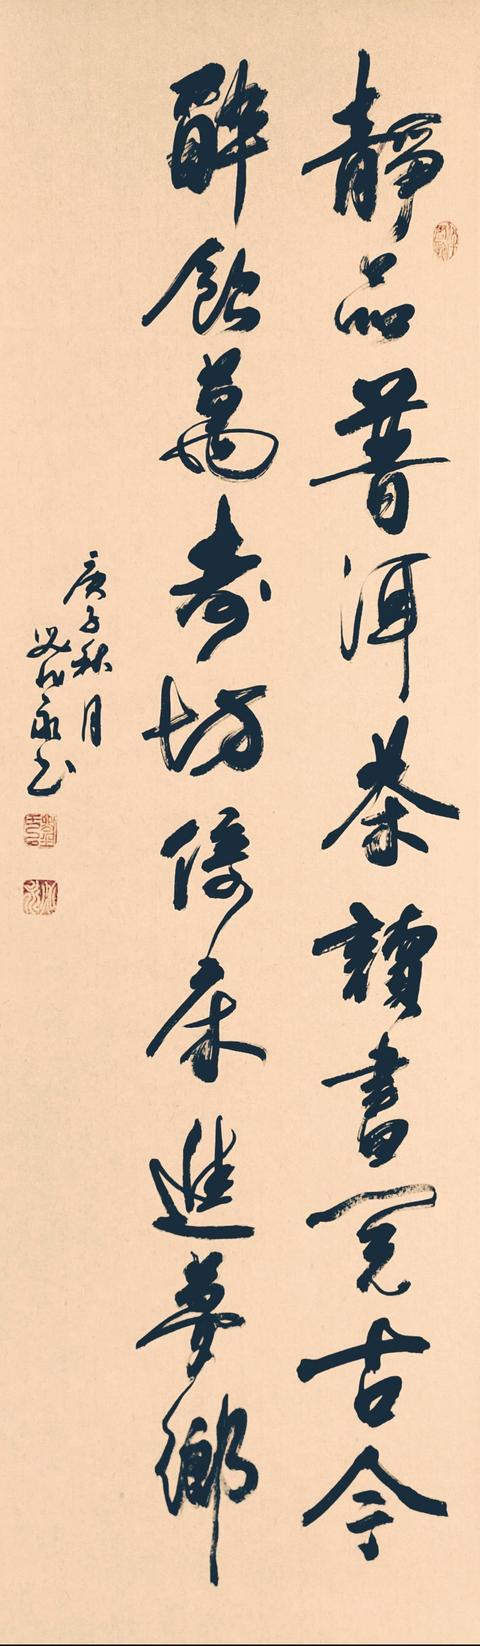 靜品普洱茶讀書閱古今
醉飲萬壽坊倚床進夢鄉
庚子秋月
永书